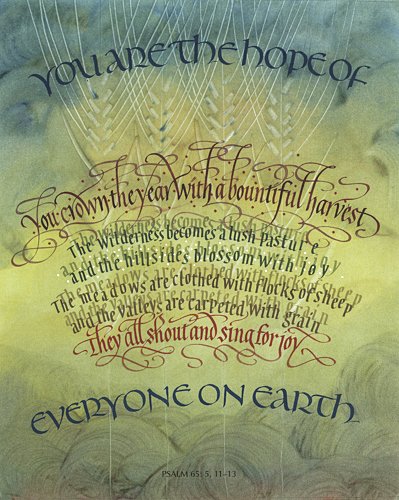 YOU ARE THE HOPE OF
You crown the year with a bountiful harvest
The wilderness becomes a lush pasture
and the hillsides blossom with joy
The meadows are clothed with flocks of sheep
and the valleys are carpeted with grain
they all shout and sing for joy
EVERYONE ON EARTH
PSALM 65: 5, 11–13